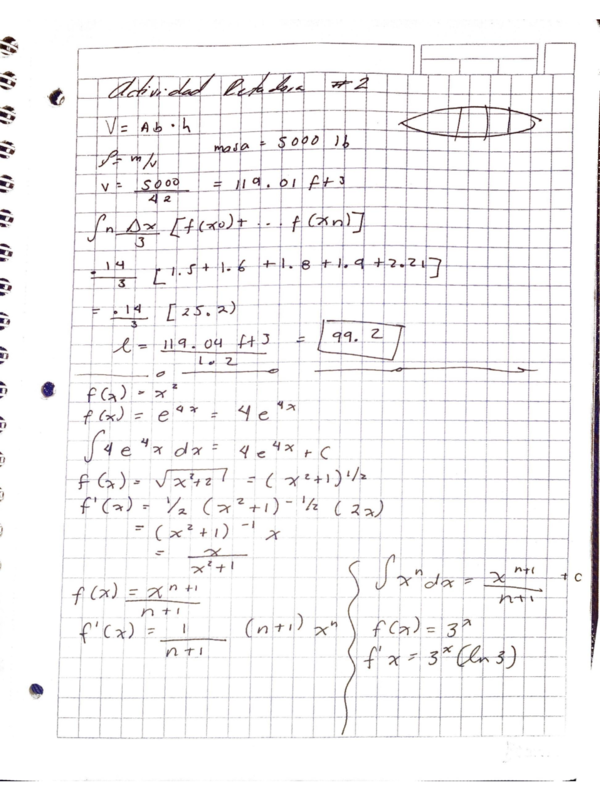 Actividad Retadora #2
V = Ab · h
masa = 5000 lb
ρ = m/v
v = 5000/42 = 119.01 ft3
∫n Δx/3 [f(x0)+ ... f(xn)]
.14/3 [1.5+1.6 +1.8+1.9+2.21]
= .14/3 [25.2)
l = 119.04 ft3/1.2 = 99.2
f(x) = x²
f(x) = e^4x = 4e^4x
∫4e^4x dx = 4e^4x + C
f(x) = √x²+2 = (x²+1)^1/2
f'(x) = 1/2 (x²+1)^-1/2 (2x)
= (x²+1)^-1 x
= x/x²+1
f(x) = x^n+1/n+1
f'(x) = 1/n+1 (n+1) x^n
∫x^n dx = x^n+1/n+1 + c
f(x) = 3^x
f'x = 3^x (ln 3)